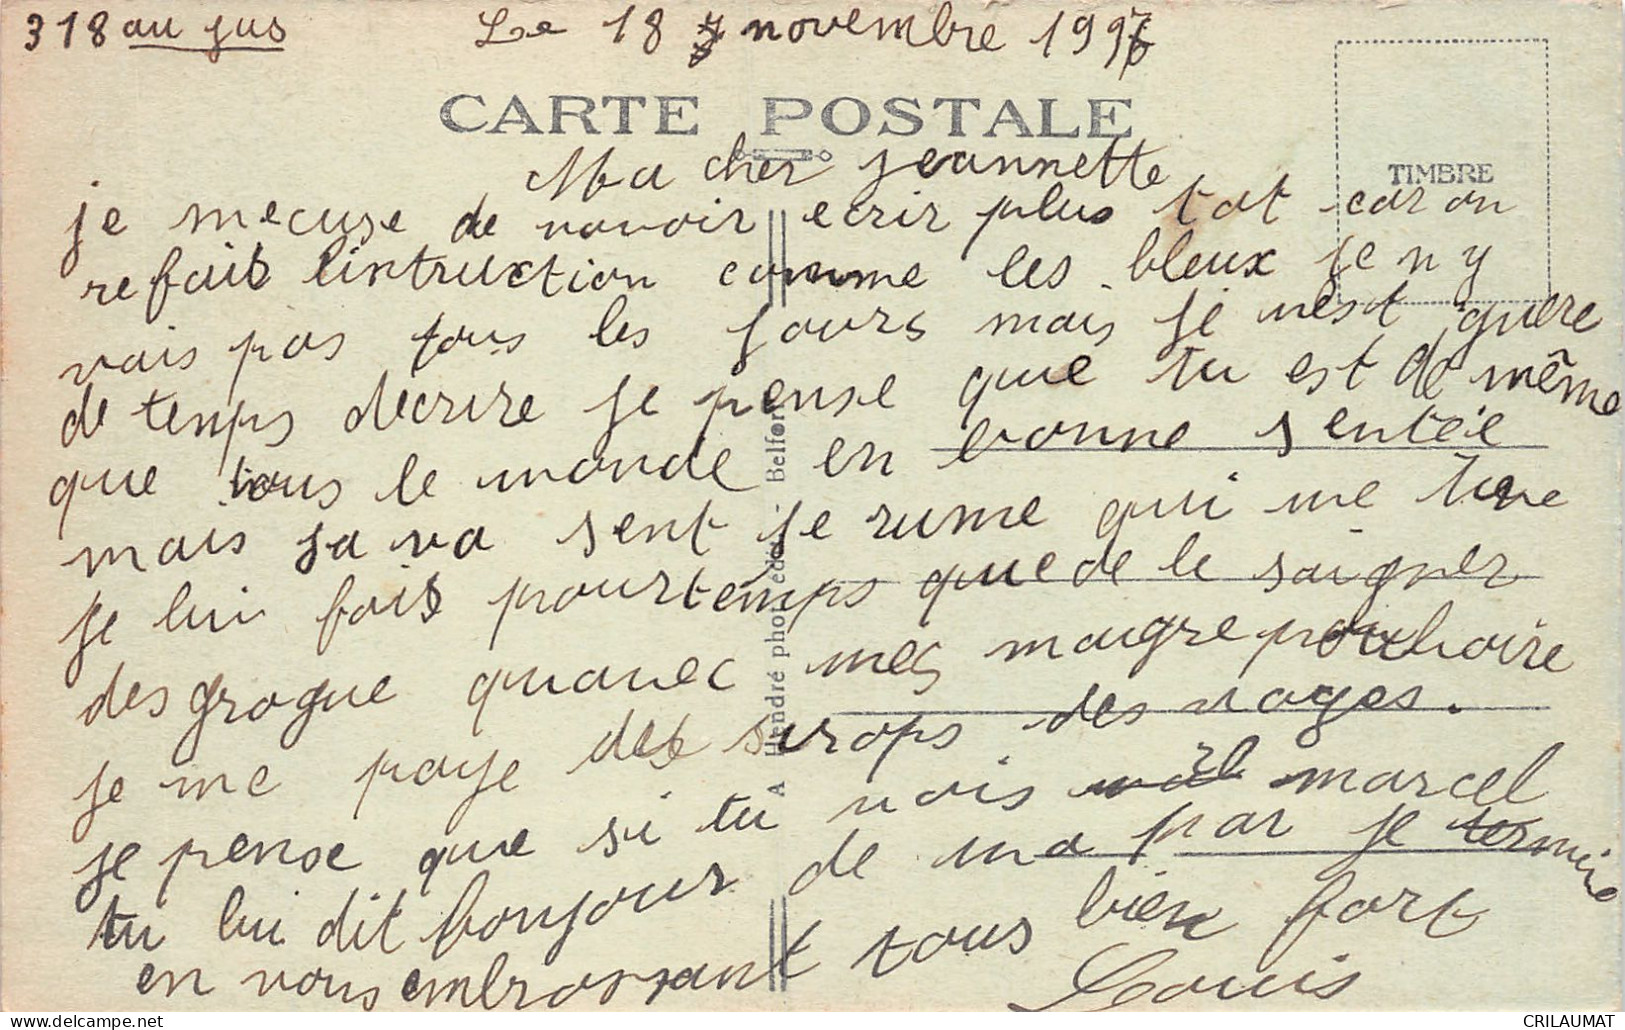 318 au jus
Le 18 novembre 1926
CARTE POSTALE
TIMBRE
Ma cher jeannette
je mecuse de navoir ecrir plus tot car on
refait lintruxction comme les bleux je n y
vais pas tous les jours mais je nest guere
de temps decrire je pense que tu est de même
que tous le monde en bonne sentée
mais sa va sent je rume qui me tune
je lui fais pourtemps que de le saigner
des grogue quavec mes maigre pouhoire
je me paye des sirops des voges.
je pense que si tu vois marcel
tu lui dit bonjour de ma par je termine
en vous embrassant tous bien fort
Louis
A Hendré phot. edit. Belfort
CRILAUMAT